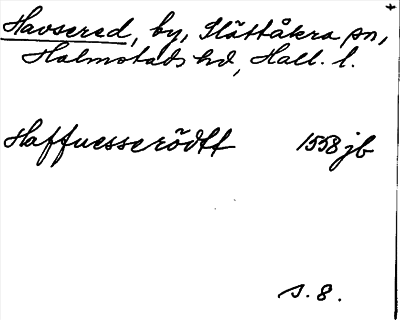 Havsered, by, Slättåkra sn,
Halmstads hd, Hall. l.
Haffuesserödtt 1558 jb
s. 8.